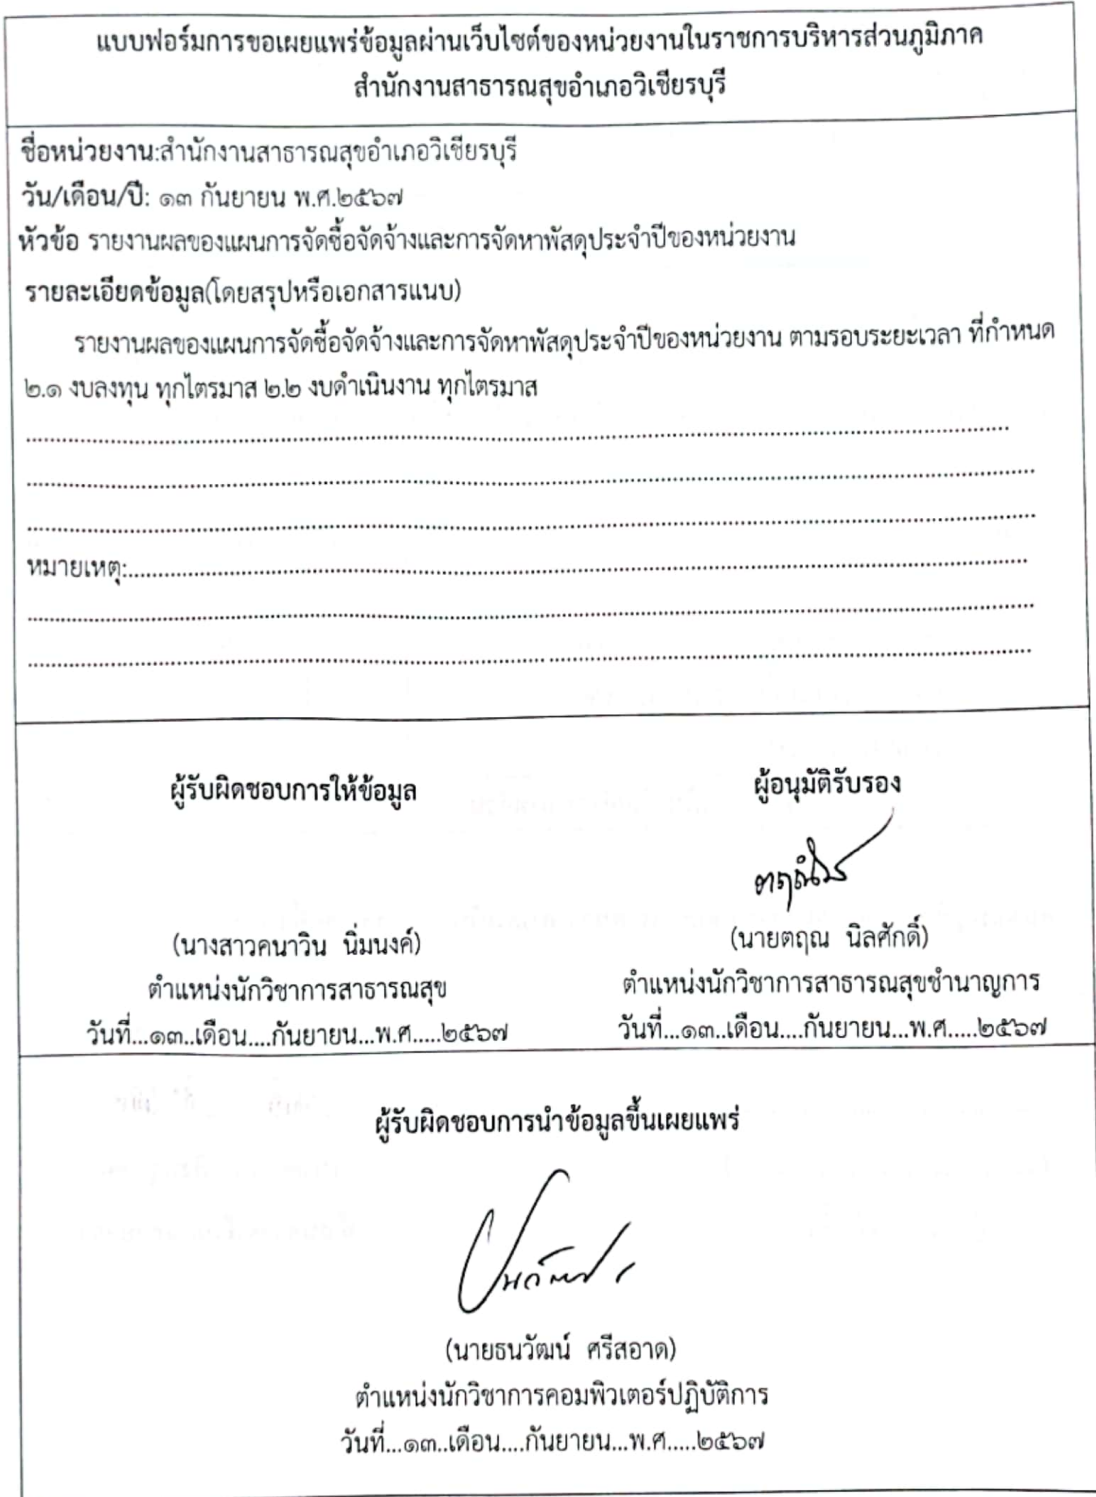 แบบฟอร์มการขอเผยแพร่ข้อมูลผ่านเว็บไซต์ของหน่วยงานในราชการบริหารส่วนภูมิภาค
สำนักงานสาธารณสุขอำเภอวิเชียรบุรี
ชื่อหน่วยงาน:สำนักงานสาธารณสุขอำเภอวิเชียรบุรี
วัน/เดือน/ปี: ๑๓ กันยายน พ.ศ.๒๕๖๗
หัวข้อ รายงานผลของแผนการจัดซื้อจัดจ้างและการจัดหาพัสดุประจำปีของหน่วยงาน
รายละเอียดข้อมูล(โดยสรุปหรือเอกสารแนบ)
รายงานผลของแผนการจัดซื้อจัดจ้างและการจัดหาพัสดุประจำปีของหน่วยงาน ตามรอบระยะเวลา ที่กำหนด
๒.๑ งบลงทุน ทุกไตรมาส ๒.๒ งบดำเนินงาน ทุกไตรมาส
หมายเหตุ:
ผู้รับผิดชอบการให้ข้อมูล
(นางสาวคนาวิน นิ่มนงค์)
ตำแหน่งนักวิชาการสาธารณสุข
วันที่...๑๓..เดือน....กันยายน...พ.ศ.....๒๕๖๗
ผู้อนุมัติรับรอง
(นายตฤณ นิลศักดิ์)
ตำแหน่งนักวิชาการสาธารณสุขชำนาญการ
วันที่...๑๓..เดือน....กันยายน...พ.ศ.....๒๕๖๗
ผู้รับผิดชอบการนำข้อมูลขึ้นเผยแพร่
(นายธนวัฒน์ ศรีสอาด)
ตำแหน่งนักวิชาการคอมพิวเตอร์ปฏิบัติการ
วันที่...๑๓..เดือน....กันยายน...พ.ศ.....๒๕๖๗